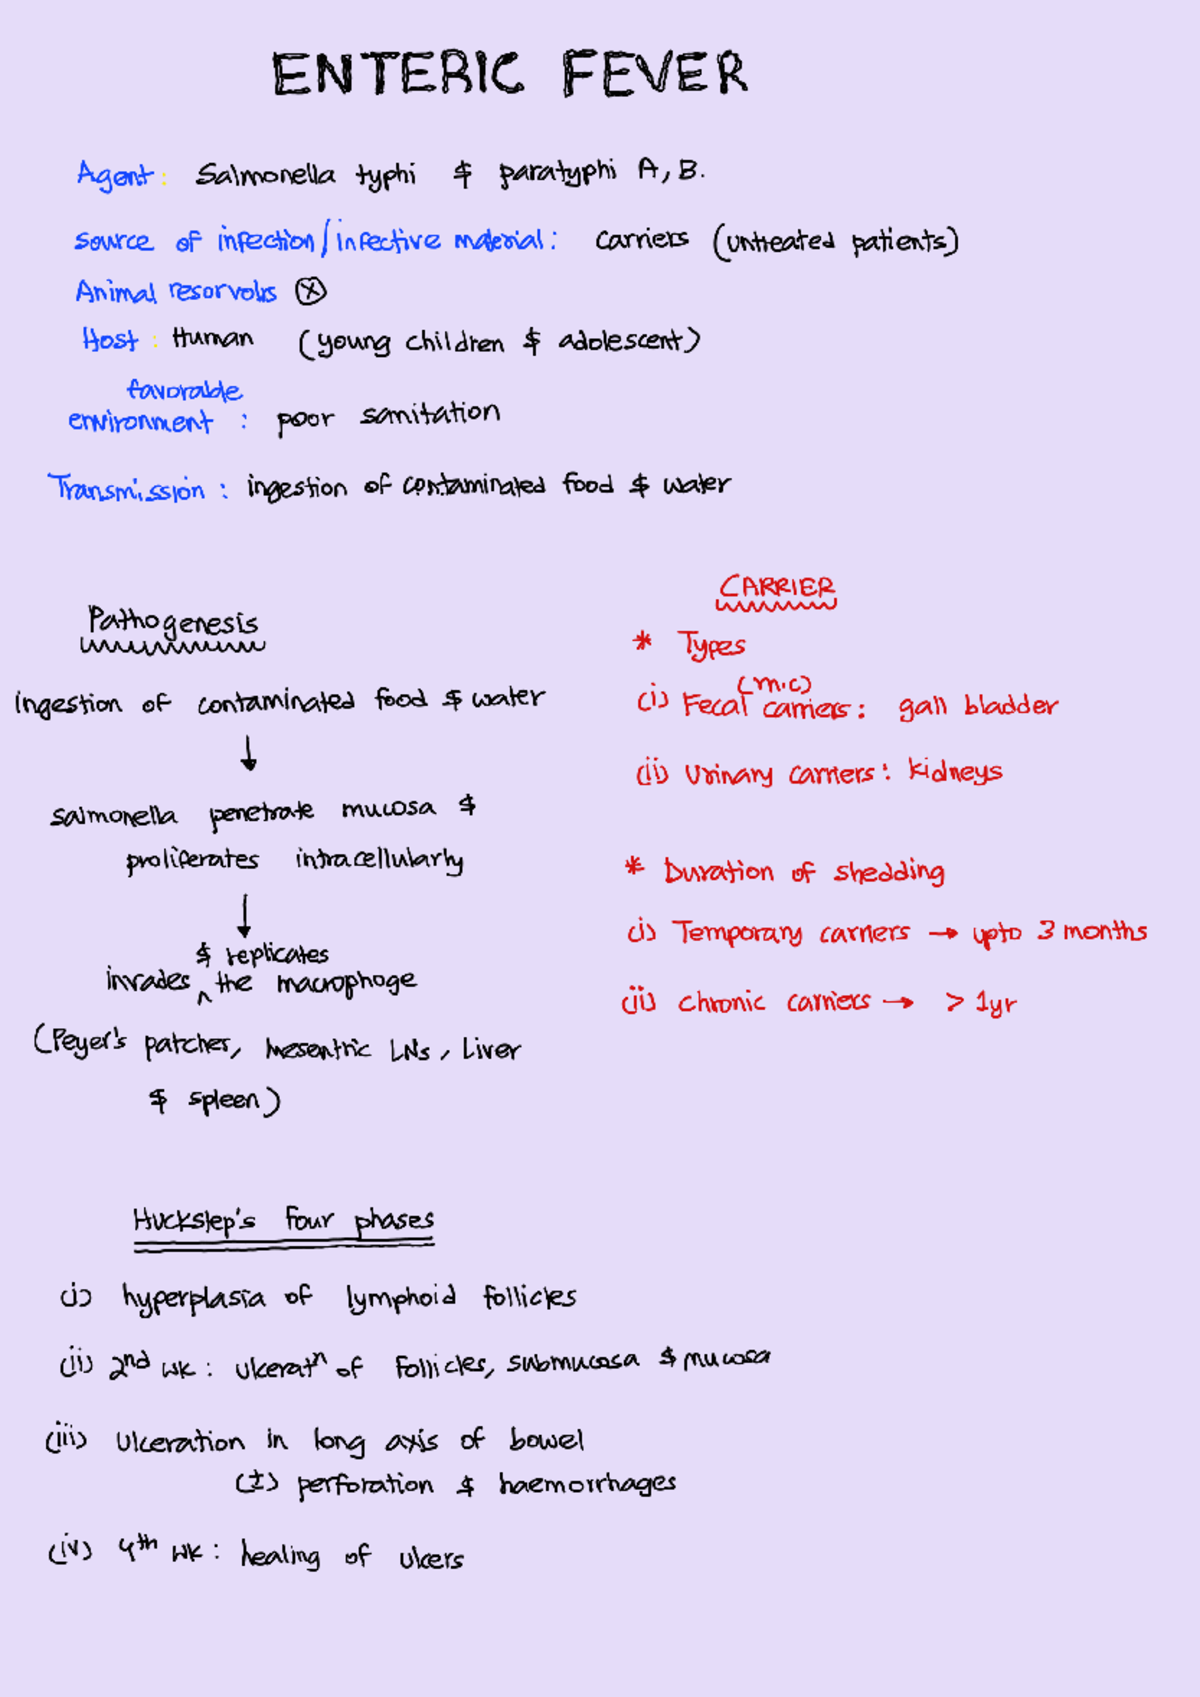 ENTERIC FEVER
Agent: Salmonella typhi & paratyphi A, B.
source of infection/infective material: carriers (untreated patients)
Animal resorvoirs ⓧ
Host: Human (young children & adolescent)
favorable
environment: poor sanitation
Transmission: ingestion of contaminated food & water
Pathogenesis
ingestion of contaminated food & water
↓
salmonella penetrate mucosa &
proliferates intracellularly
↓
& replicates
invades ^ the macrophage
(Peyer's patches, mesentric LNs, Liver
& spleen)
CARRIER
* Types
(m.c)
(i) Fecal carriers: gall bladder
(ii) Urinary carriers: kidneys
* Duration of shedding
(i) Temporary carriers → upto 3 months
(ii) chronic carriers → > 1yr
Huckstep's four phases
(i) hyperplasia of lymphoid follicles
(ii) 2nd wk: ulceratn of follicles, submucosa & mucosa
(iii) Ulceration in long axis of bowel
(±) perforation & haemorrhages
(iv) 4th wk: healing of ulcers